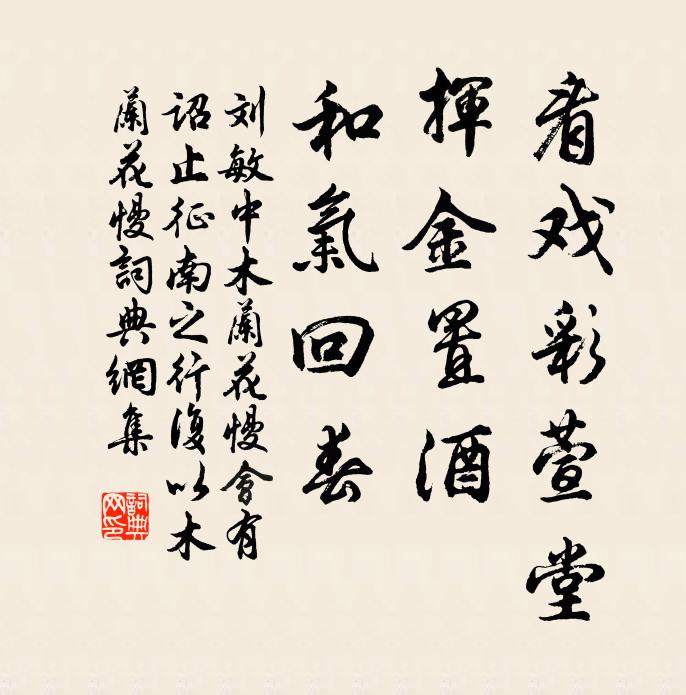 看戏彩萱堂
揮金置酒
和氣回春
刘敏中木蘭花慢會有
詔止征南之行復以木
蘭花慢詞典網集
詞典
网印